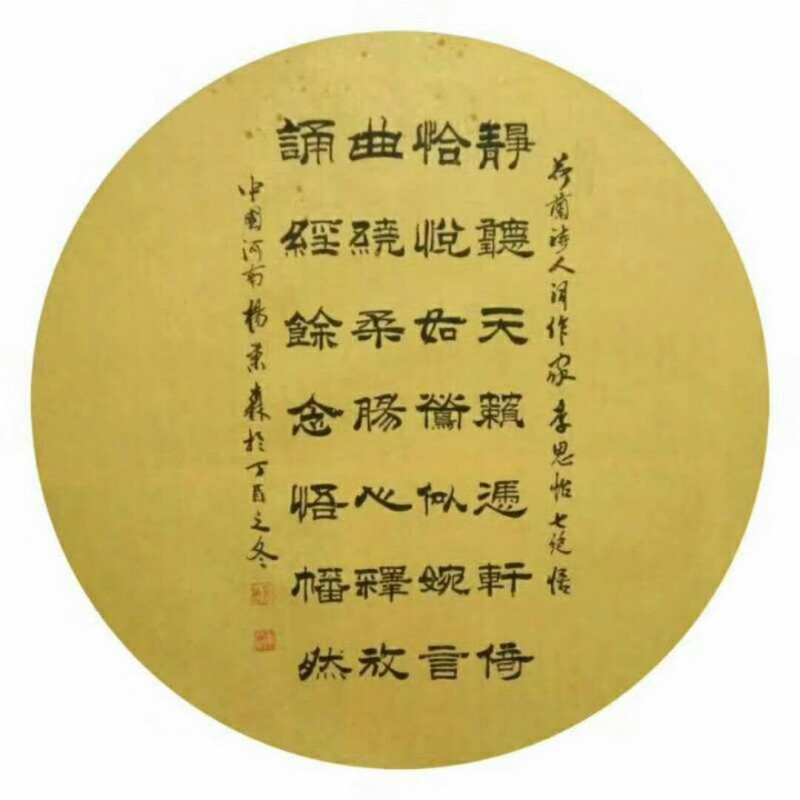 荷蘭詩人詞作家李思怡七絕悟
靜聽天籟憑軒倚
恰悅如鶯似婉言
曲繞柔腸心釋放
誦經餘念悟幡然
中國河南楊業森於丁酉之冬